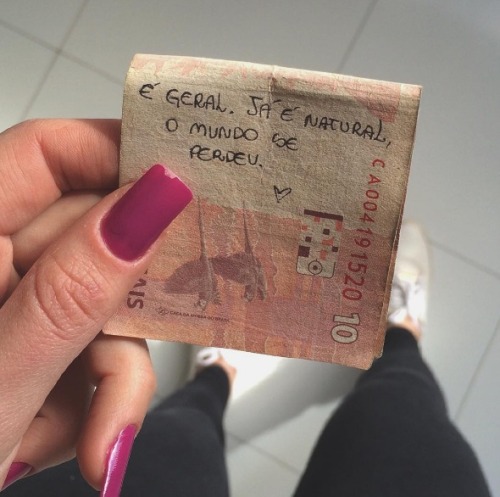 É GERAL. JÁ É NATURAL,
O MUNDO SE
PERDEU.
CA004191520
10
AIS
CASA DA MOEDA DO BRASIL